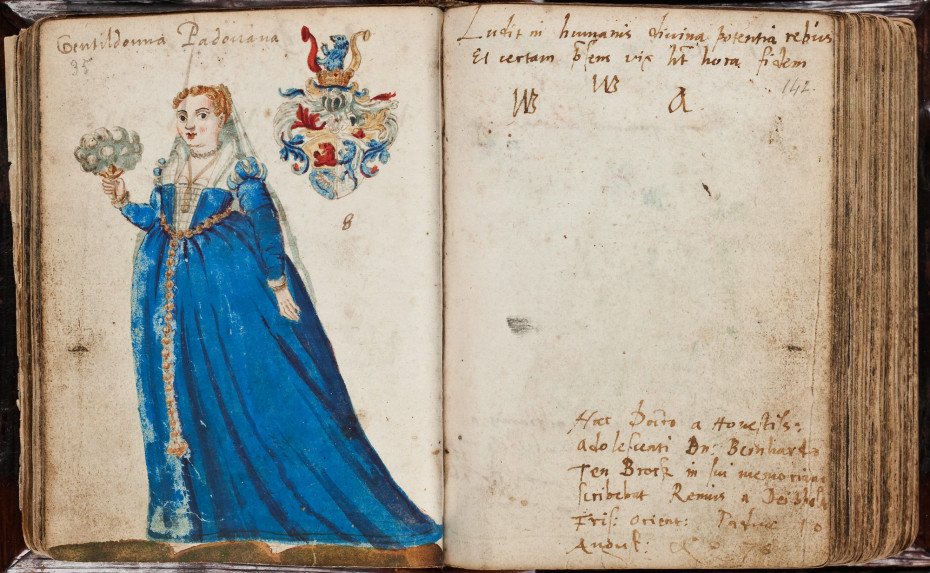 Gentildonna Padouana
35
8
Ludit in humanis divina potentia rebus
Et certam p̃sens vix ht̃ hora fidem
142.
W W A
Hæc Docto a Honestiss:
adolescenti Dn: Bernhardo
Ten Broek in sui memoriam
scribebat Remius a
Fris: orient: 10
August: 76